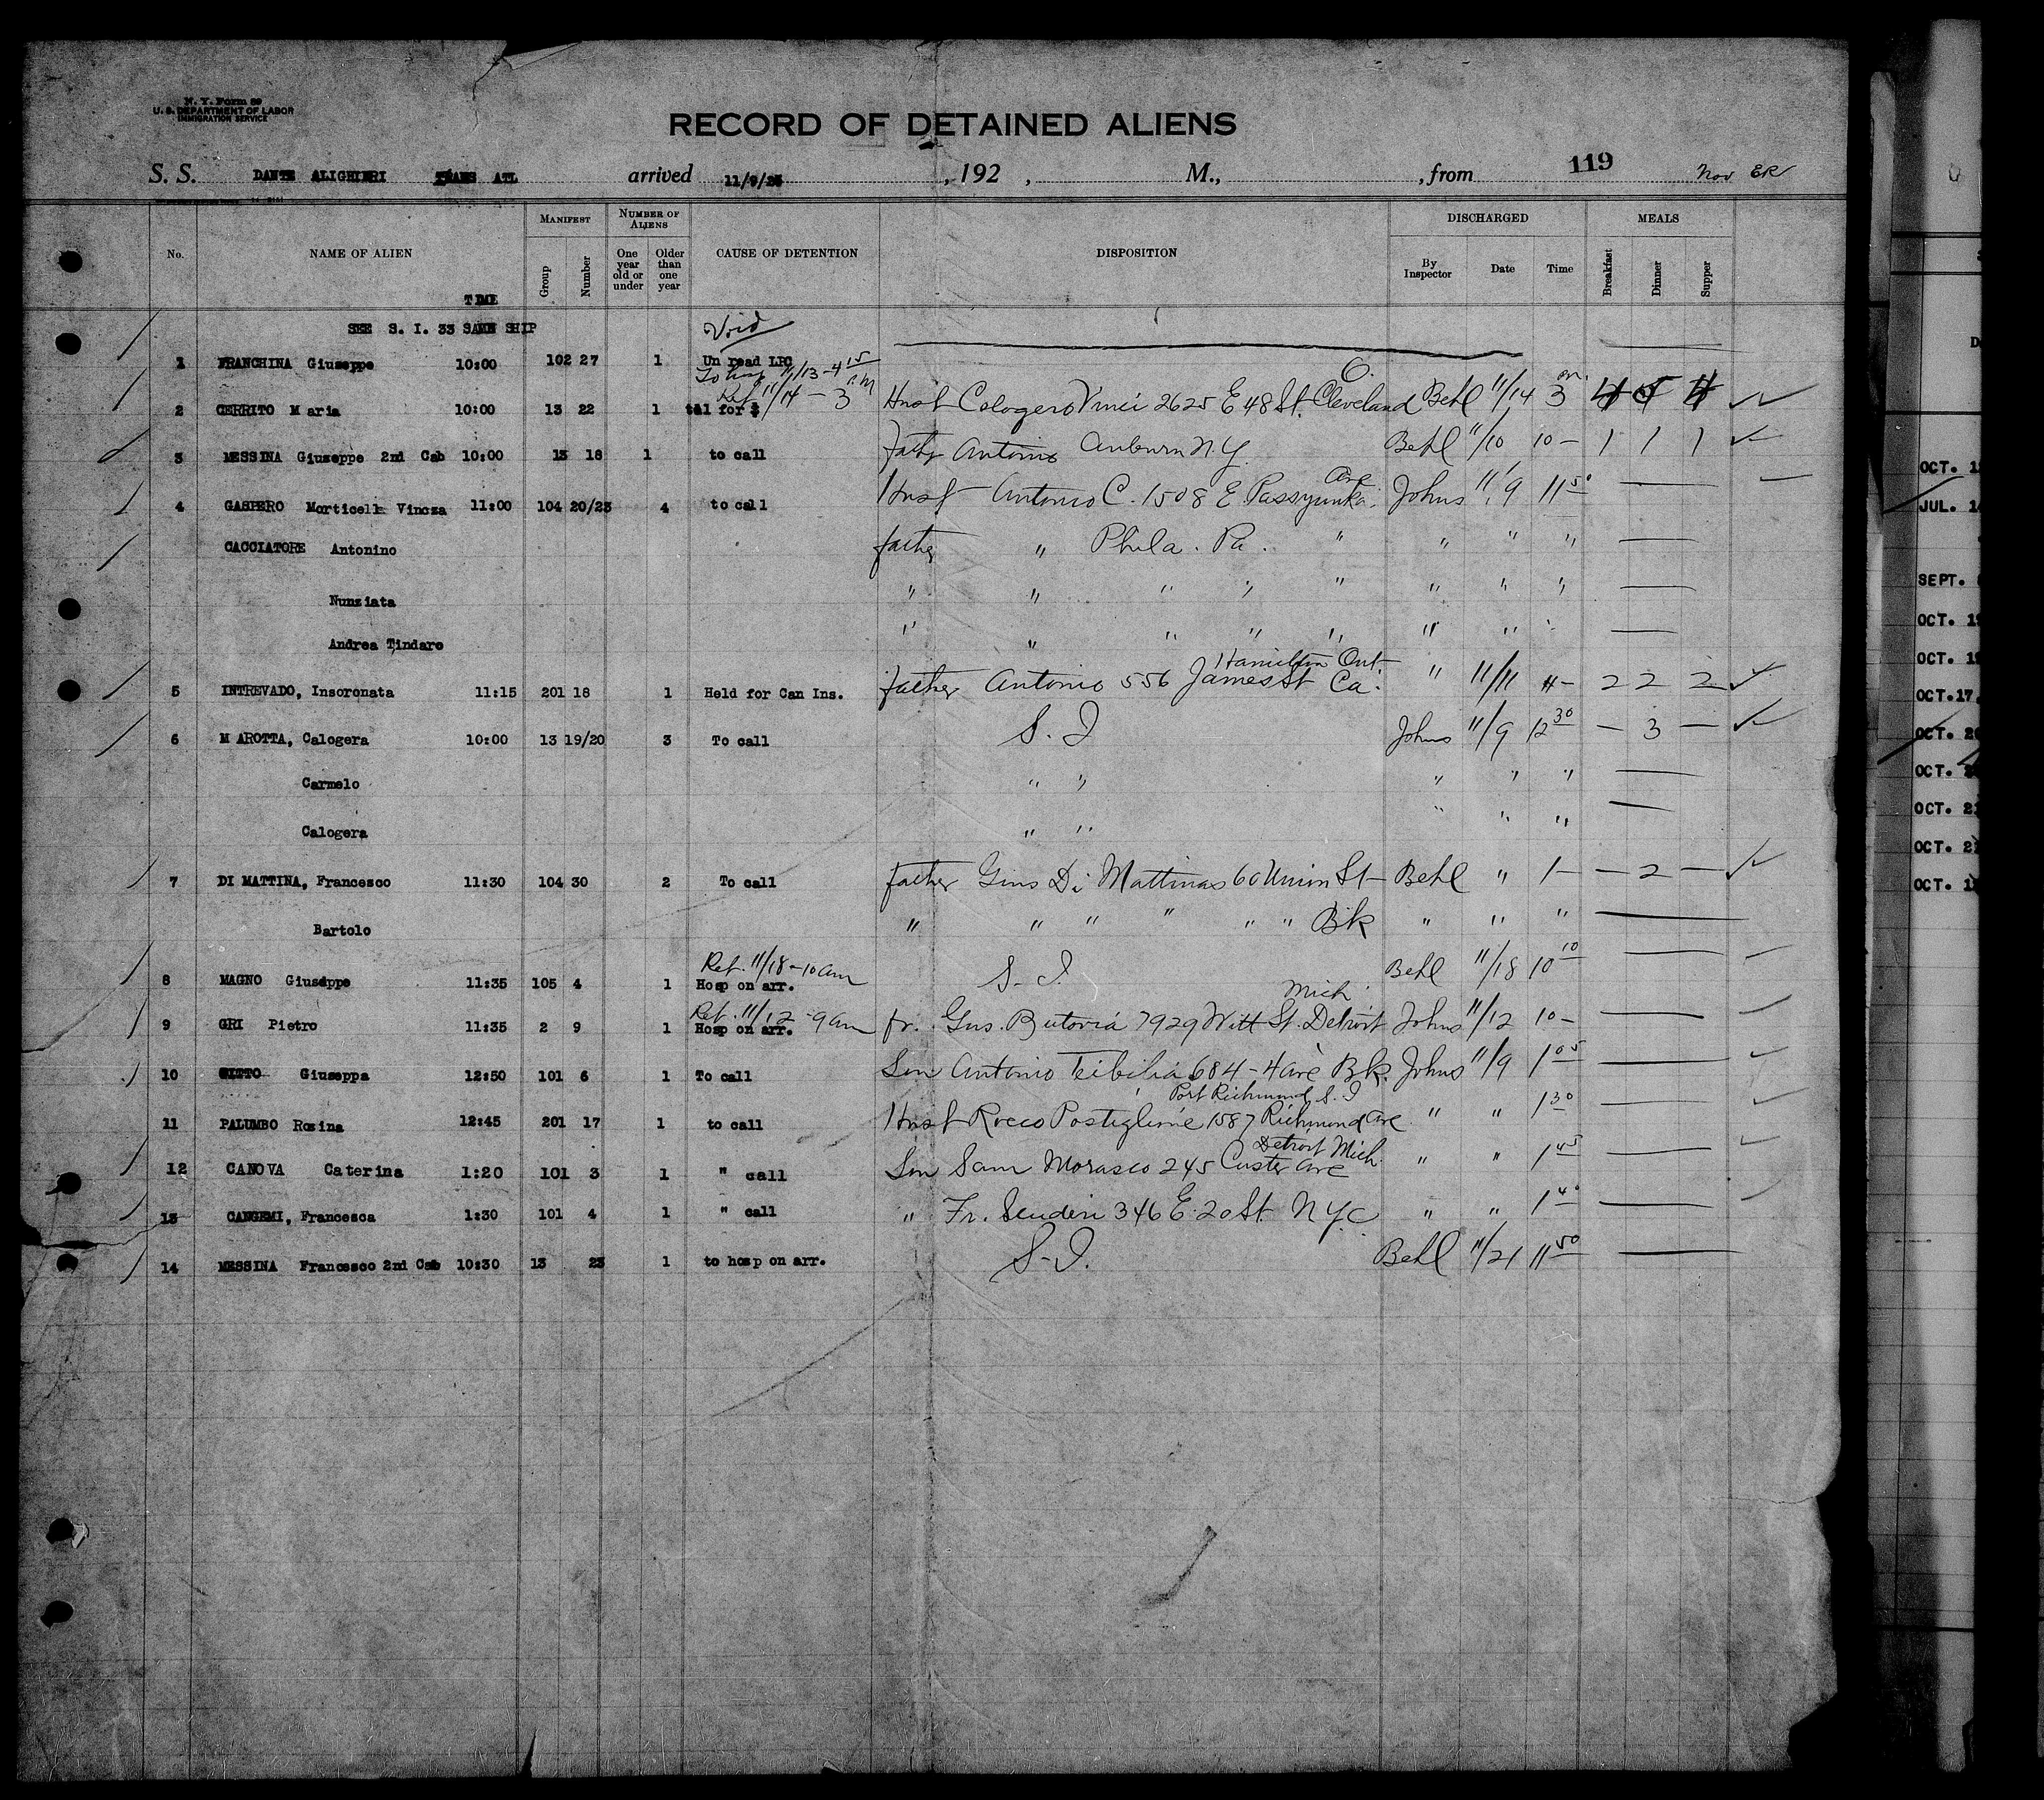 N. Y. Form 89
U. S. DEPARTMENT OF LABOR
IMMIGRATION SERVICE
RECORD OF DETAINED ALIENS
119
S. S. DANTE ALIGHIERI TRANS ATL arrived 11/9/25, 192 , M., , from Nov ER
No. NAME OF ALIEN TIME MANIFEST Group Number NUMBER OF ALIENS One year old or under Older than one year CAUSE OF DETENTION DISPOSITION DISCHARGED By Inspector Date Time MEALS Breakfast Dinner Supper
SEE S. I. 33 SAME SHIP Void
1 FRANCHINA Giuseppe 10:00 102 27 1 Un read LPC
To hosp 11/13 - 4 15 P.M
Ret 11/14 - 3
2 CERRITO Maria 10:00 13 22 1 tel for $ Husb Calogero Vinci 2625 E 48 St. Cleveland O. Behl 11/14 3 pm 4 5 4
3 MESSINA Giuseppe 2nd Cab 10:00 13 18 1 to call Fath Antonio Auburn N.Y. Behl 11/10 10 - 1 1 1
4 GASPERO Morticelle Vincza 11:00 104 20/23 4 to call Husb Antonio C. 1508 E. Passyunk Ave Johns 11/9 11 50
CACCIATORE Antonino father " Phila. Pa. " " " "
Nunziata " " " " " " " "
Andrea Tindaro " " " " " " " "
Hamilton Ont
5 INTREVADO, Insoronata 11:15 201 18 1 Held for Can Ins. father Antonio 556 James St Ca. " 11/11 11 - 2 2 2
6 MAROTTA, Calogera 10:00 13 19/20 3 To call S. I Johns 11/9 12 30 - 3 -
Carmelo " " " " "
Calogera " " " " "
7 DI MATTINA, Francesco 11:30 104 30 2 To call father Gius Di Mattinas 60 Union St - Behl " 1 - - 2 -
Bartolo " " " " " " Bk " " "
Ret. 11/18 - 10 am
8 MAGNO Giuseppe 11:35 105 4 1 Hosp on arr. S. I. Behl 11/18 10 10
Ret. 11/12 - 9 am Mich
9 GRI Pietro 11:35 2 9 1 Hosp on arr. fr. Gus. Butovia 7929 Witt St. Detroit Johns 11/12 10 -
10 GITTO Giuseppa 12:50 101 6 1 To call Son Antonio Teibilia 684 - 4 ave Bk. Johns 11/9 1 05
Port Richmond S. I
11 PALUMBO Rosina 12:45 201 17 1 to call Husb Rocco Postiglione 1587 Richmond Ave " " 1 30
Detroit Mich.
12 CANOVA Caterina 1:20 101 3 1 " call Son Sam Morasco 245 Custer Ave " " 1 45
13 CANGEMI, Francesca 1:30 101 4 1 " call " Fr. Scuderi 346 E. 20 St. N.Y.C " " 1 40
14 MESSINA Francesco 2nd Cab 10:30 13 23 1 to hosp on arr. S. I. Behl 11/21 11 50
OCT. 1
JUL. 1
SEPT.
OCT. 1
OCT. 1
OCT. 17
OCT. 2
OCT. 2
OCT. 2
OCT. 2
OCT. 1